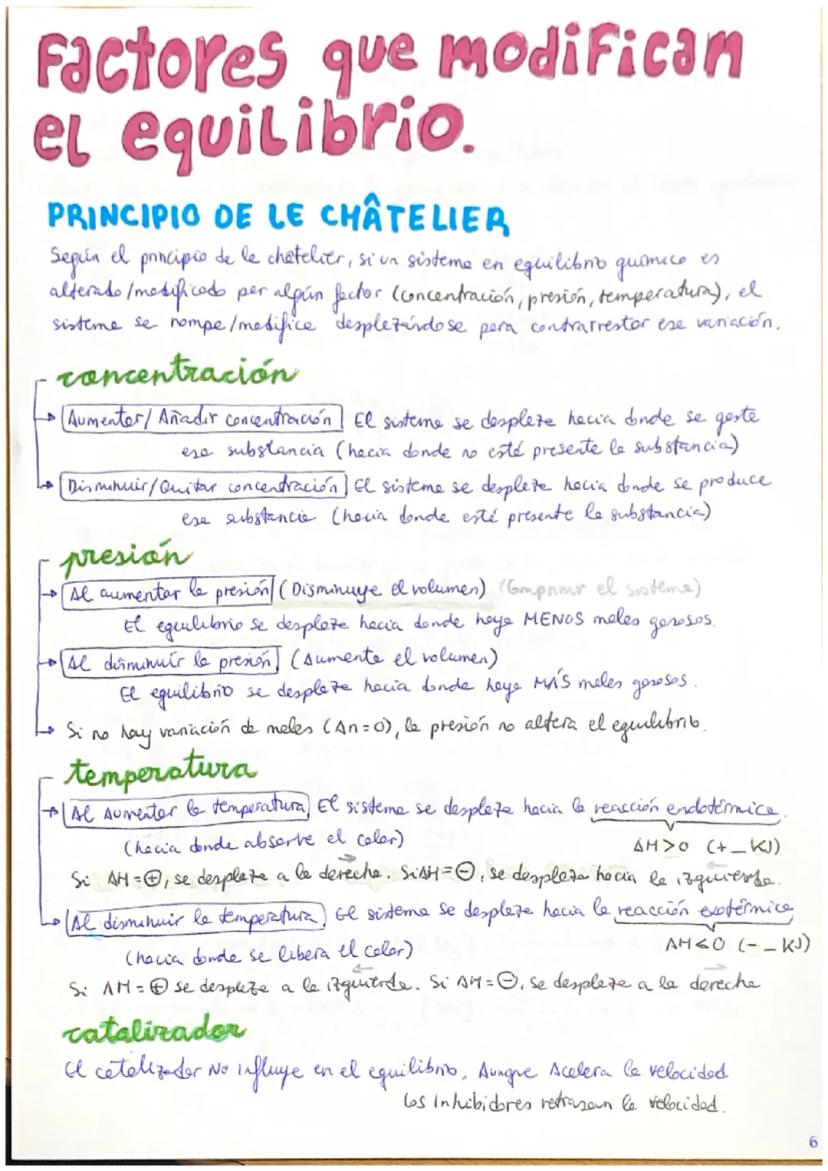 Factores que modifican
el equilibrio.
PRINCIPIO DE LE CHÂTELIER
Según el principio de le chatelier, si un sistema en equilibrio químico es
alterado/modificado por algún factor (concentración, presión, temperatura), el
sistema se rompe/modifica desplazándose para contrarrestar esa variación.
concentración
Aumentar/Añadir concentración El sistema se desplaza hacia donde se gasta
esa substancia (hacia donde no esté presente la substancia)
Disminuir/Quitar concentración El sistema se desplaza hacia donde se produce
esa substancia (hacia donde esté presente la substancia)
presión
Al aumentar la presión (Disminuye el volumen) (Comprimir el sistema)
El equilibrio se desplaza hacia donde haya MENOS moles gaseosos.
Al disminuir la presión (Aumenta el volumen)
El equilibrio se desplaza hacia donde haya MÁS moles gaseosos.
Si no hay variación de moles (Δn=0), la presión no altera el equilibrio.
temperatura
Al Aumentar la temperatura El sistema se desplaza hacia la reacción endotérmica.
(hacia donde absorbe el calor) ΔH>0 (+_KJ)
Si ΔH=⊕, se desplaza a la derecha. Si ΔH=⊖, se desplaza hacia la izquierda.
Al disminuir la temperatura El sistema se desplaza hacia la reacción exotérmica
(hacia donde se libera el calor) ΔH<0 (-_KJ)
Si ΔH=⊕ se desplaza a la izquierda. Si ΔH=⊖, se desplaza a la derecha
catalizador
El catalizador NO influye en el equilibrio, Aunque Acelera la velocidad
Los inhibidores retrasan la velocidad.
6